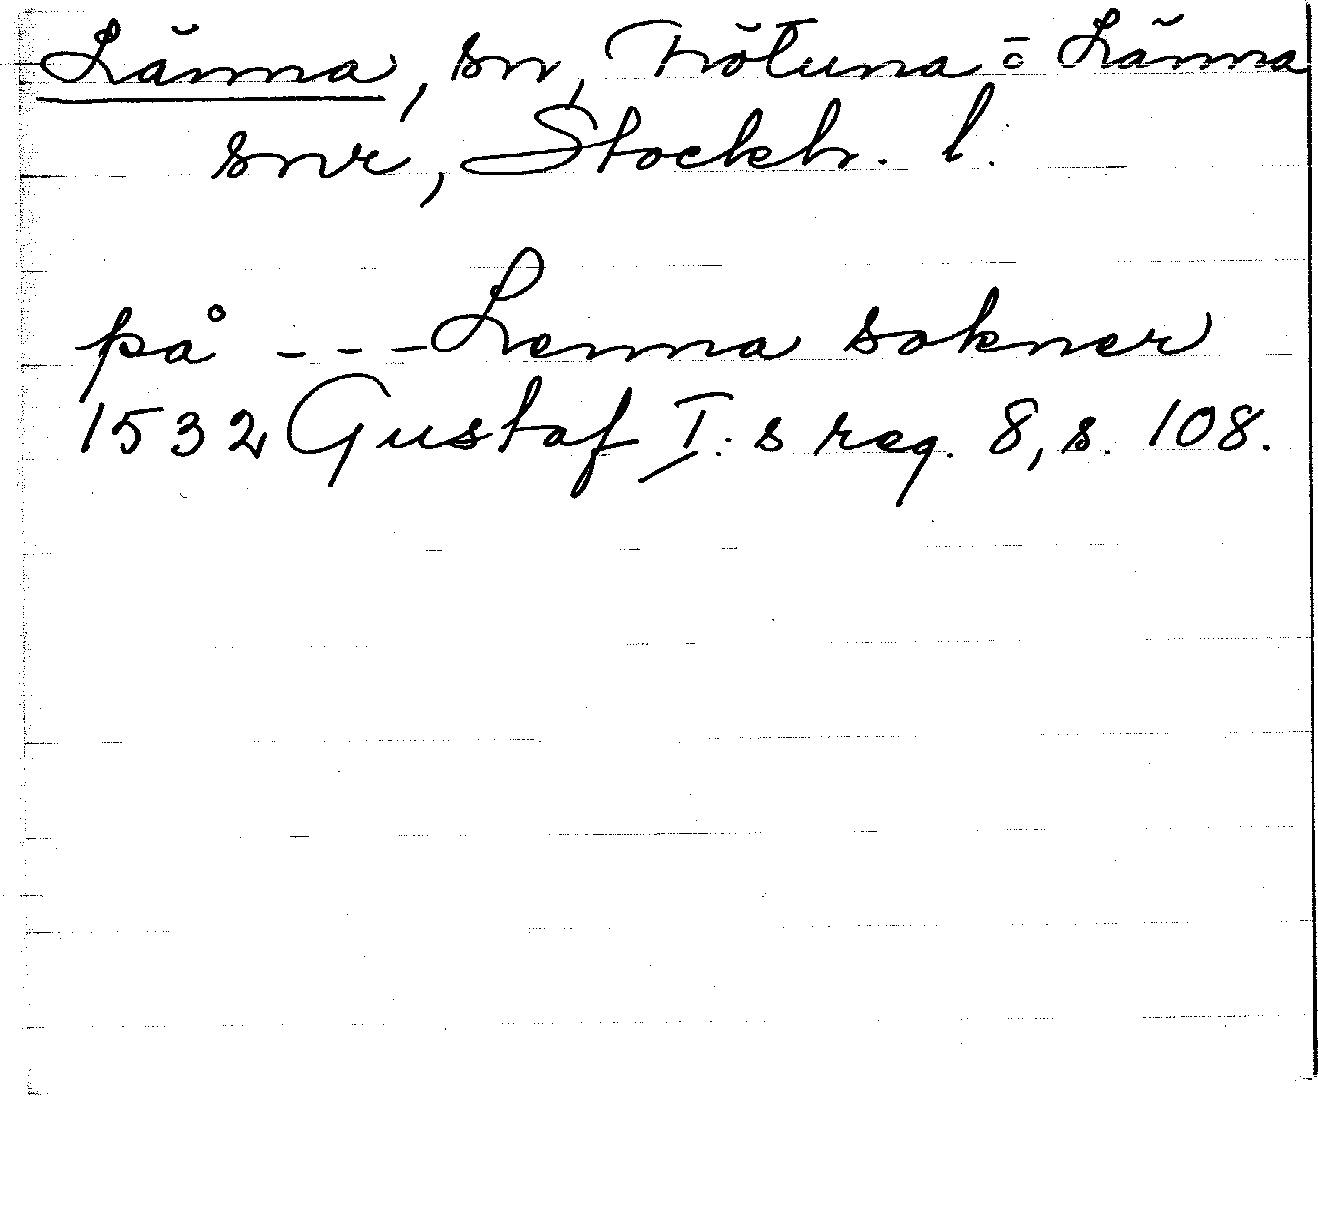 Länna, sn, Frötuna o Länna
snr, Stockh. l.
på --- Lenna sokner
1532 Gustaf I:s reg. 8, s. 108.